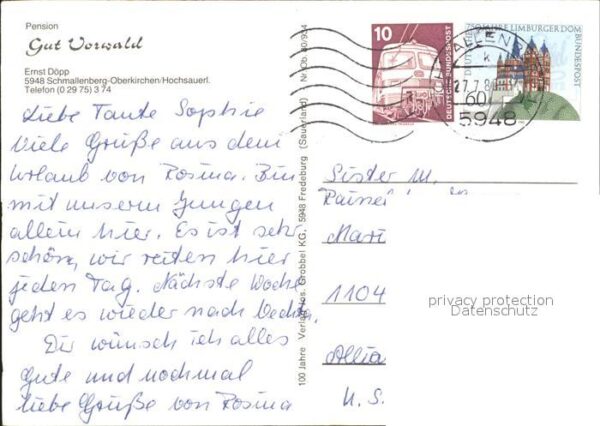 Pension
Gut Vorwald
Ernst Döpp
5948 Schmallenberg-Oberkirchen/Hochsauerl.
Telefon (0 29 75) 3 74
Liebe Tante Sophie
Viele Grüße aus dem
Urlaub von Rosina. Bin
mit unserm Jungen
allein hier. Es ist sehr
schön, wir reiten hier
jeden Tag. Nächste Woche
geht es wieder nach Vechta.
Dir wünsch ich alles
Gute und nochmal
liebe Grüße von Rosina
100 Jahre Verlag Jos. Grobbel KG, 5948 Fredeburg (Sauerland)
10
DEUTSCHE BUNDESPOST
750 JAHRE LIMBURGER DOM
DEUTSCHE BUNDESPOST
60
5948
Sister M.
Mari
1104
Allia
U. S.
privacy protection
Datenschutz